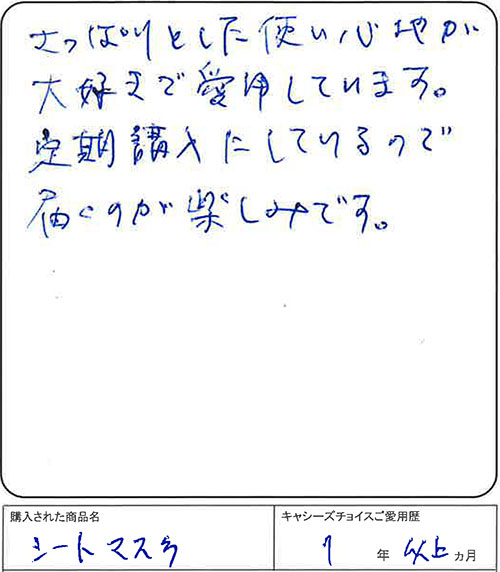 さっぱりとした使い心地が
大好きで愛用しています。
定期購入にしているので
届くのが楽しみです。
購入された商品名
シートマスク
キャシーズチョイスご愛用歴
7年 以上ヵ月